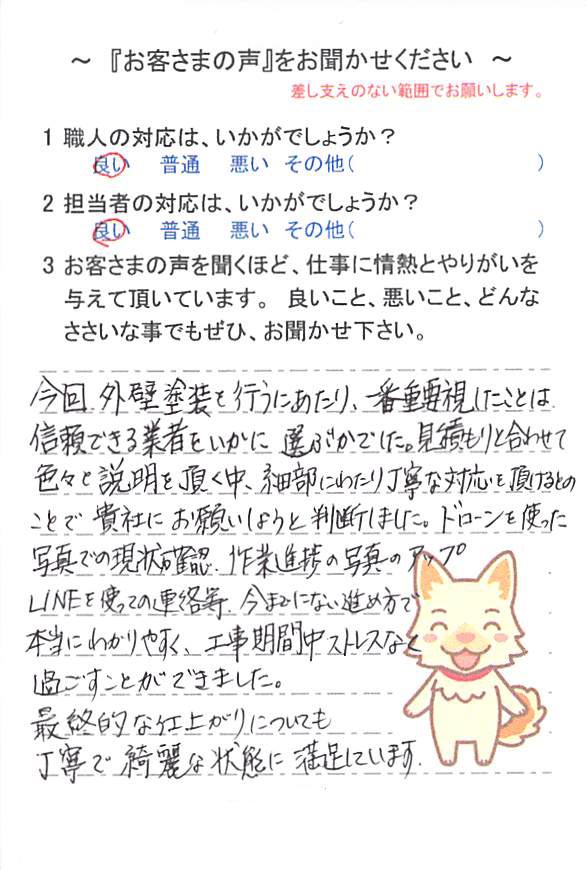 ～ 『お客さまの声』をお聞かせください ～
差し支えのない範囲でお願いします。
1 職人の対応は、いかがでしょうか？
良い 普通 悪い その他( )
2 担当者の対応は、いかがでしょうか？
良い 普通 悪い その他( )
3 お客さまの声を聞くほど、仕事に情熱とやりがいを
与えて頂いています。 良いこと、悪いこと、どんな
ささいな事でもぜひ、お聞かせ下さい。
今回 外壁塗装を行うにあたり、一番重要視したことは
信頼できる業者をいかに 選ぶかでした。見積もりと合わせて
色々と説明を頂く中、細部にわたり丁寧な対応を頂けるとの
ことで 貴社に お願いしようと判断しました。ドローンを使った
写真での現状確認、作業進捗の写真のアップ
LINEを使っての連絡等、今までにない進め方で
本当にわかりやすく、工事期間中ストレスなく
過ごすことができました。
最終的な仕上がりについても
丁寧で 綺麗な状態に 満足しています。